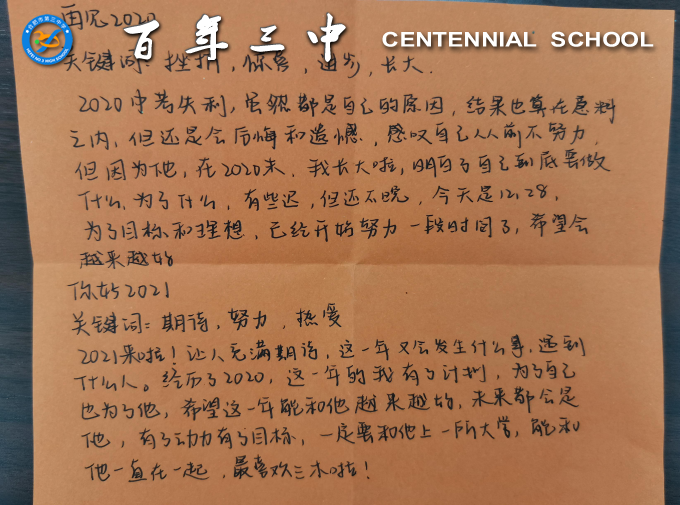 再见2020
百年三中 CENTENNIAL SCHOOL
关键词: 挫折, 惊喜, 进步, 长大.
2020中考失利, 虽然都是自己的原因, 结果也算在意料
之内, 但还是会后悔和遗憾, 感叹自己从前不努力,
但因为他, 在2020末, 我长大啦, 明白了自己到底要做
什么, 为了什么, 有些迟, 但还不晚, 今天是12.28,
为了目标和理想, 已经开始努力一段时间了, 希望会
越来越好
你好2021
关键词: 期待, 努力, 热爱
2021来啦! 让人充满期待, 这一年又会发生什么事, 遇到
什么人。经历了2020, 这一年的我有了计划, 为了自己
也为了他, 希望这一年能和他越来越好, 未来都会是
他, 有了动力有了目标, 一定要和他上一所大学, 能和
他一直在一起, 最喜欢三木啦!